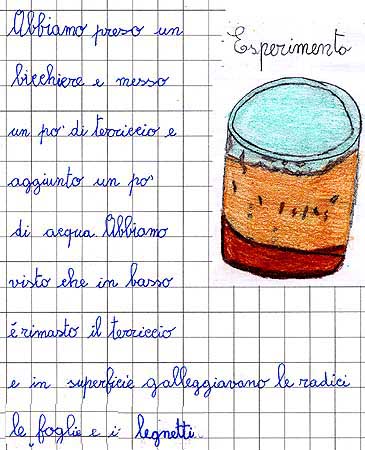 Abbiamo preso un
Esperimento
bicchiere e messo
un po' di terriccio e
aggiunto un po'
di acqua Abbiamo
visto che in basso
é rimasto il terriccio
e in superficie galleggiavano le radici
le foglie e i legnetti.